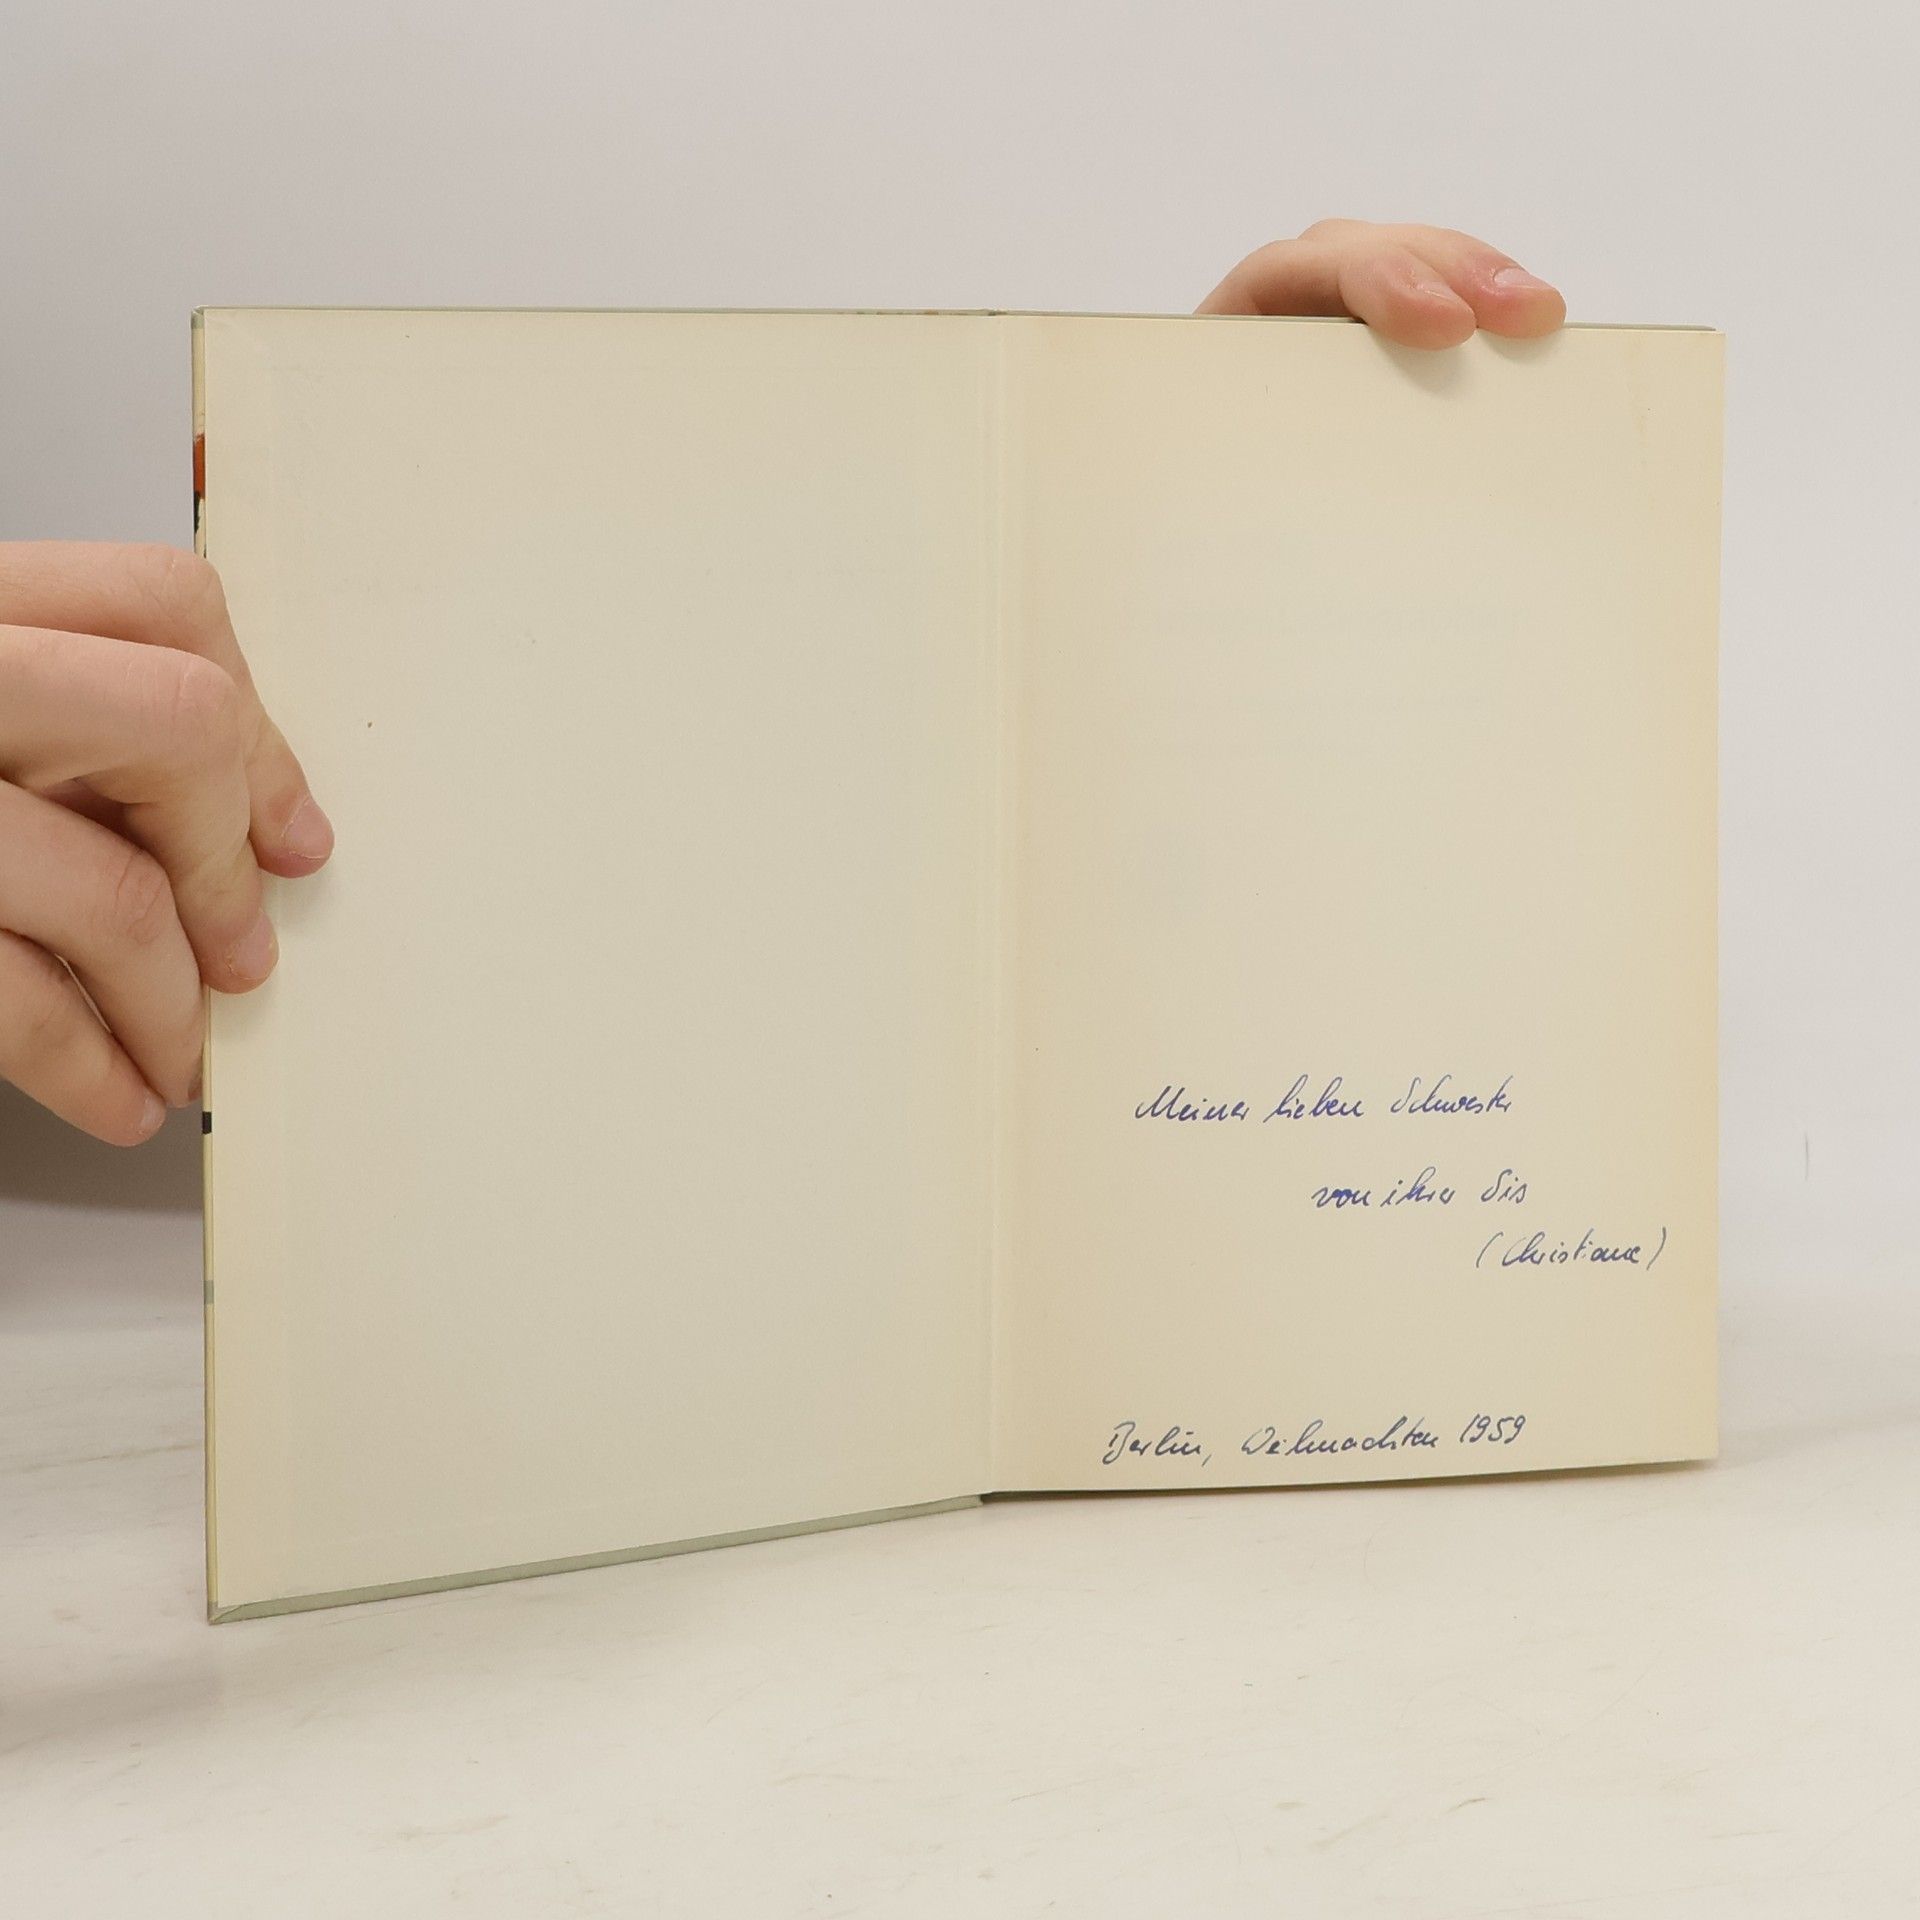 Meiner lieben Schwester
von ihrer Sis
(Christiane)
Berlin, Weihnachten 1959